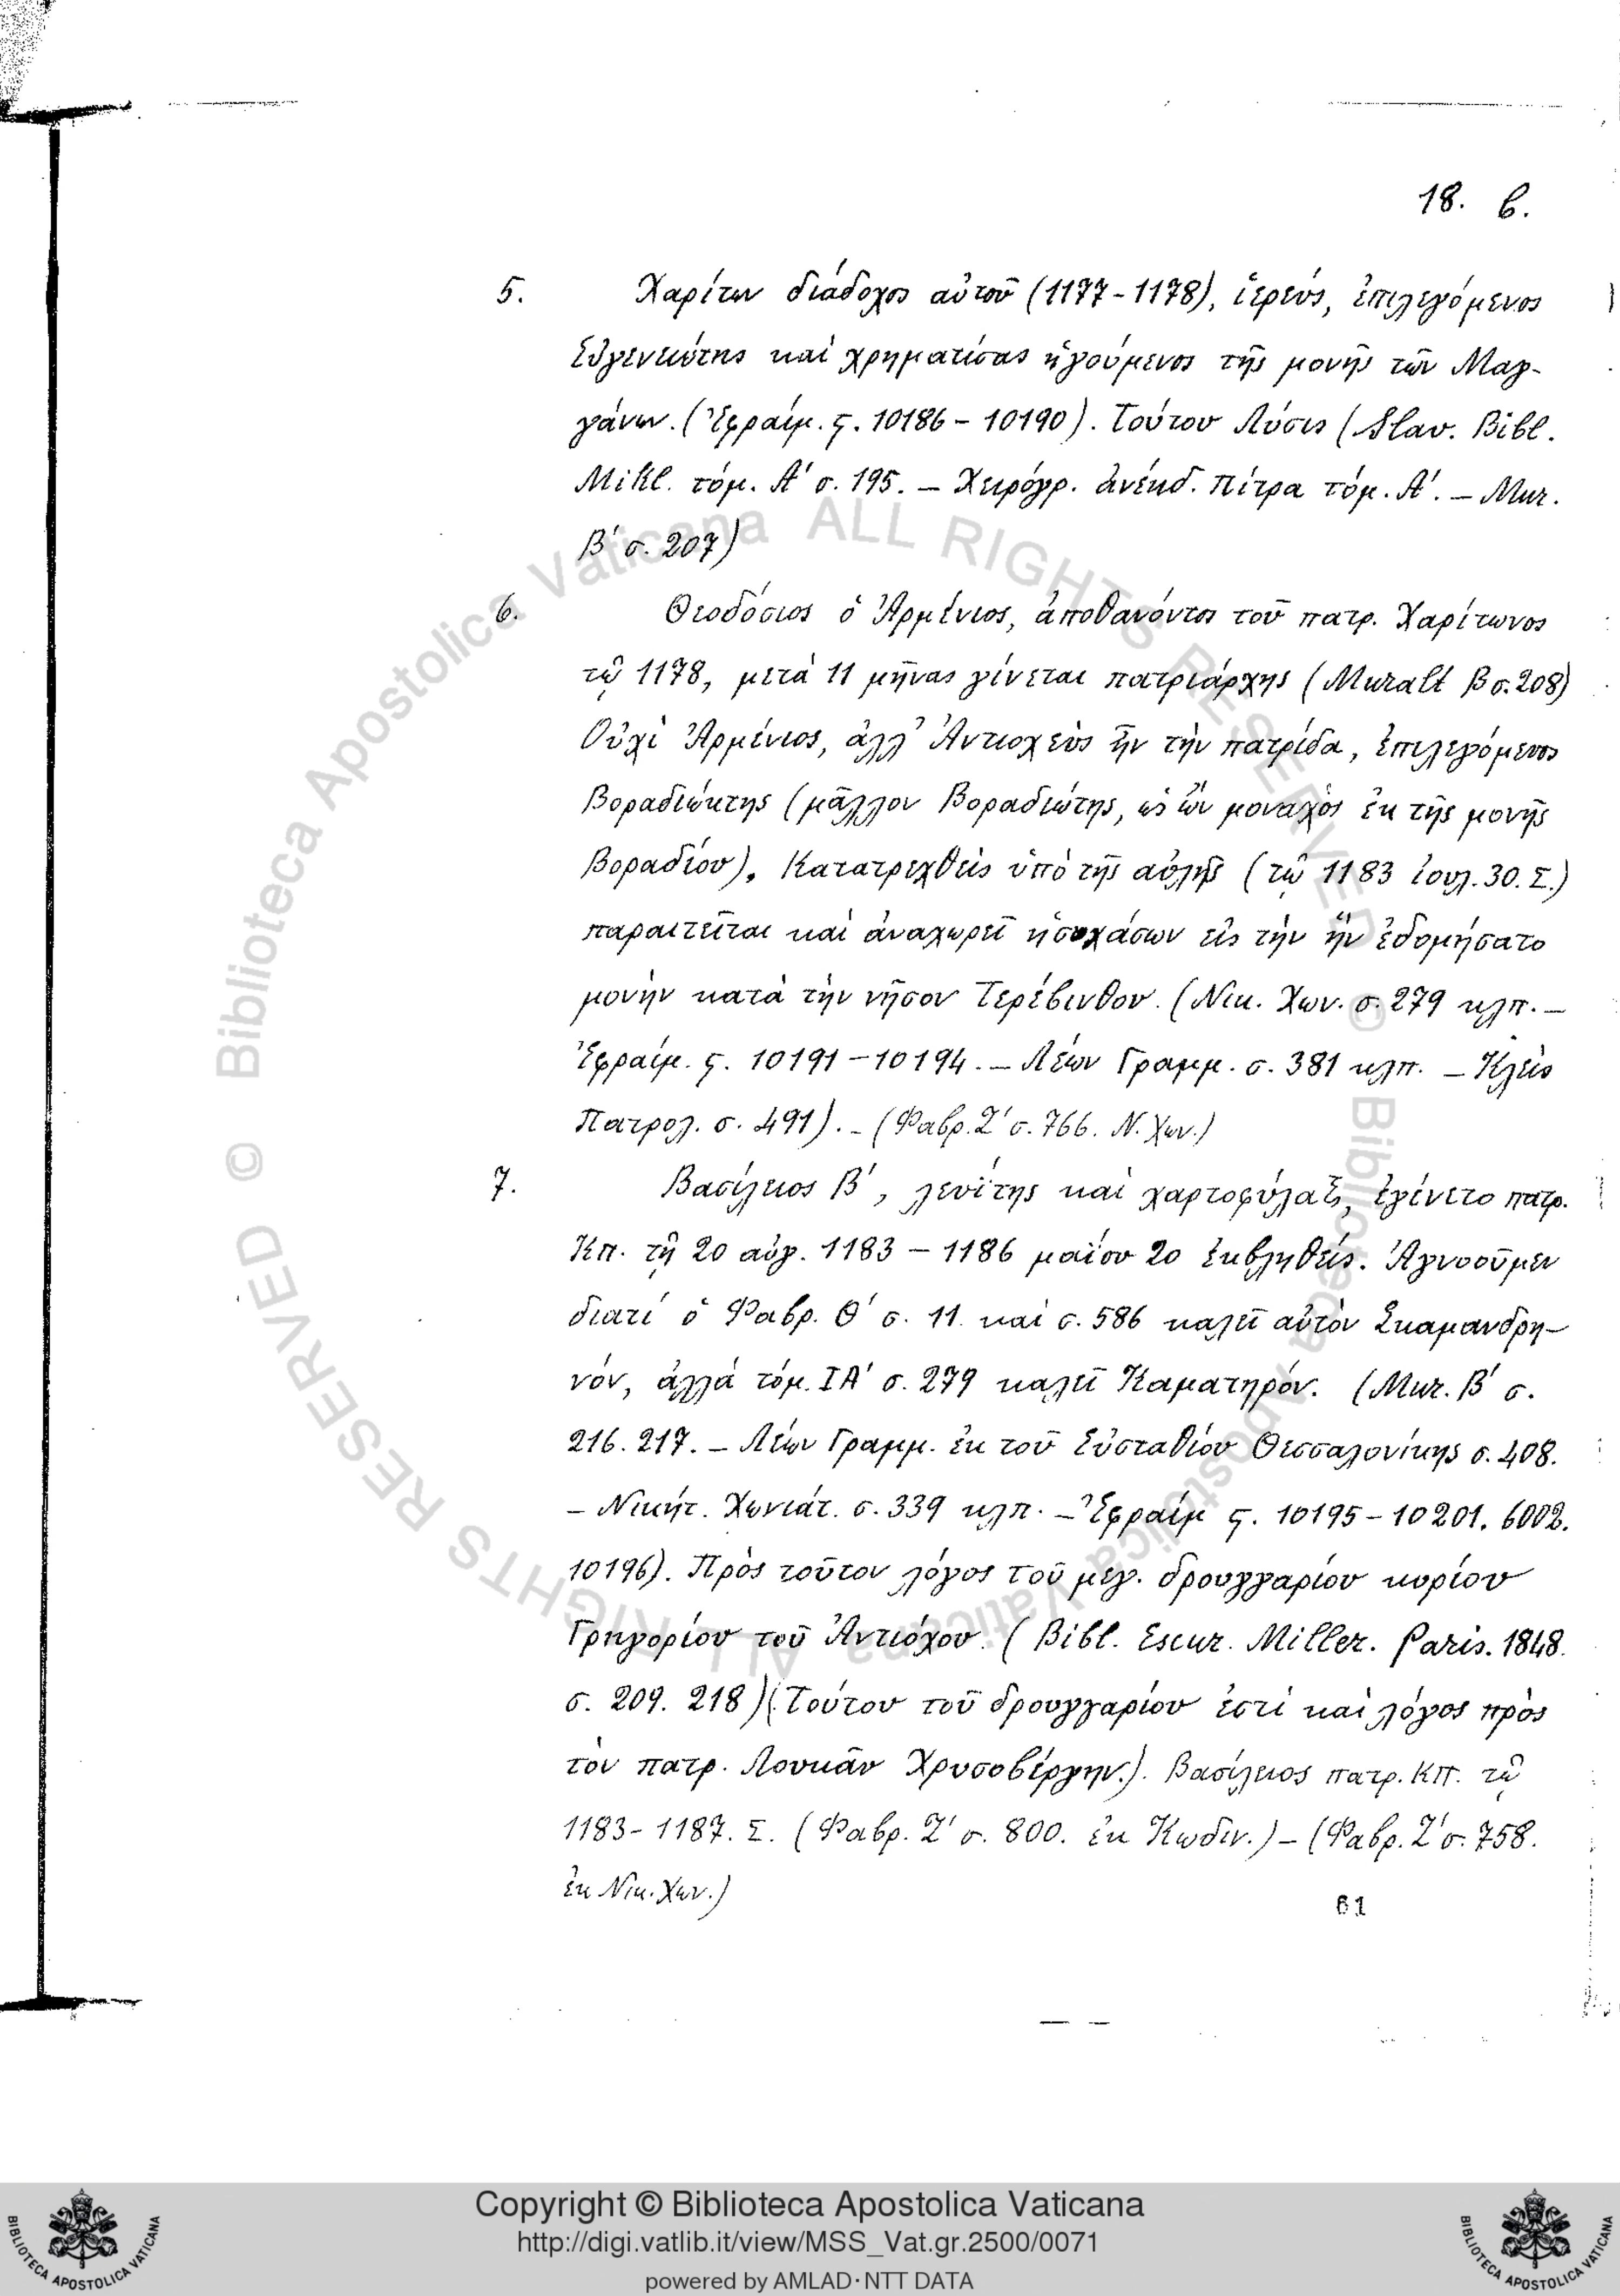 18. β.
5. Χαρίτων διάδοχος αὐτοῦ (1177-1178), ἱερεύς, ἐπιλεγόμενος
Εὐγενειώτης καὶ χρηματίσας ἡγούμενος τῆς μονῆς τῶν Μαγ-
γάνων. (Ἐφραίμ. ς. 10186-10190). Τούτου Λύσις (Slav. Bibl.
Mikl. τόμ. Α' σ. 195. — Χειρόγρ. ἀνέκδ. Πίτρα τόμ. Α'. — Mur.
Β' σ. 207)
6. Θεοδόσιος ὁ Ἀρμένιος, ἀποθανόντος τοῦ πατρ. Χαρίτωνος
τῷ 1178, μετὰ 11 μῆνας γίνεται πατριάρχης (Muralt β σ. 208)
Οὐχὶ Ἀρμένιος, ἀλλ' Ἀντιοχεὺς ἦν τὴν πατρίδα, ἐπιλεγόμενος
Βοραδιώκτης (μᾶλλον Βοραδιώτης, ὡς ὢν μοναχὸς ἐκ τῆς μονῆς
Βοραδίου). Κατατρεχθεὶς ὑπὸ τῆς αὐλῆς (τῷ 1183 ἰουλ. 30. Σ.)
παραιτεῖται καὶ ἀναχωρεῖ ἡσυχάσων εἰς τὴν ἣν ἐδομήσατο
μονὴν κατὰ τὴν νῆσον Τερέβινθον. (Νικ. Χων. σ. 279 κλπ. —
Ἐφραίμ. ς. 10191-10194. — Λέων Γραμμ. σ. 381 κλπ. — Κλεὶς
Πατρολ. σ. 491). - (Φαβρ. Ζ' σ. 766. Ν. Χων.)
7. Βασίλειος Β', λευΐτης καὶ χαρτοφύλαξ, ἐγένετο πατρ.
Κπ. τῇ 20 αὐγ. 1183 - 1186 μαΐου 20 ἐκβληθείς. Ἀγνοοῦμεν
διατί ὁ Φαβρ. Θ' σ. 11. καὶ σ. 586 καλεῖ αὐτὸν Σκαμανδρη-
νόν, ἀλλὰ τόμ. ΙΑ' σ. 279 καλεῖ Καματηρόν. (Mur. Β' σ.
216. 217. — Λέων Γραμμ. ἐκ τοῦ Εὐσταθίου Θεσσαλονίκης σ. 408.
— Νικήτ. Χωνιάτ. σ. 339 κλπ. — Ἐφραίμ ς. 10195-10201. 6002.
10196). Πρὸς τοῦτον λόγος τοῦ μεγ. δρουγγαρίου κυρίου
Γρηγορίου τοῦ Ἀντιόχου. (Bibl. Escur. Miller. Paris. 1848.
σ. 209. 218) (Τούτου τοῦ δρουγγαρίου ἐστὶ καὶ λόγος πρὸς
τὸν πατρ. Λουκᾶν Χρυσοβέργην.). Βασίλειος πατρ. ΚΠ. τῷ
1183-1187. Σ. (Φαβρ. Ζ' σ. 800. ἐκ Κωδιν.) — (Φαβρ. Ζ' σ. 758.
ἐκ Νικ. Χων.)
61
© Biblioteca Apostolica Vaticana ALL RIGHTS RESERVED © Biblioteca Apostolica Vaticana ALL RIGHTS RESERVED
Copyright © Biblioteca Apostolica Vaticana
http://digi.vatlib.it/view/MSS_Vat.gr.2500/0071
powered by AMLAD·NTT DATA
BIBLIOTECA APOSTOLICA VATICANA
BIBLIOTECA APOSTOLICA VATICANA